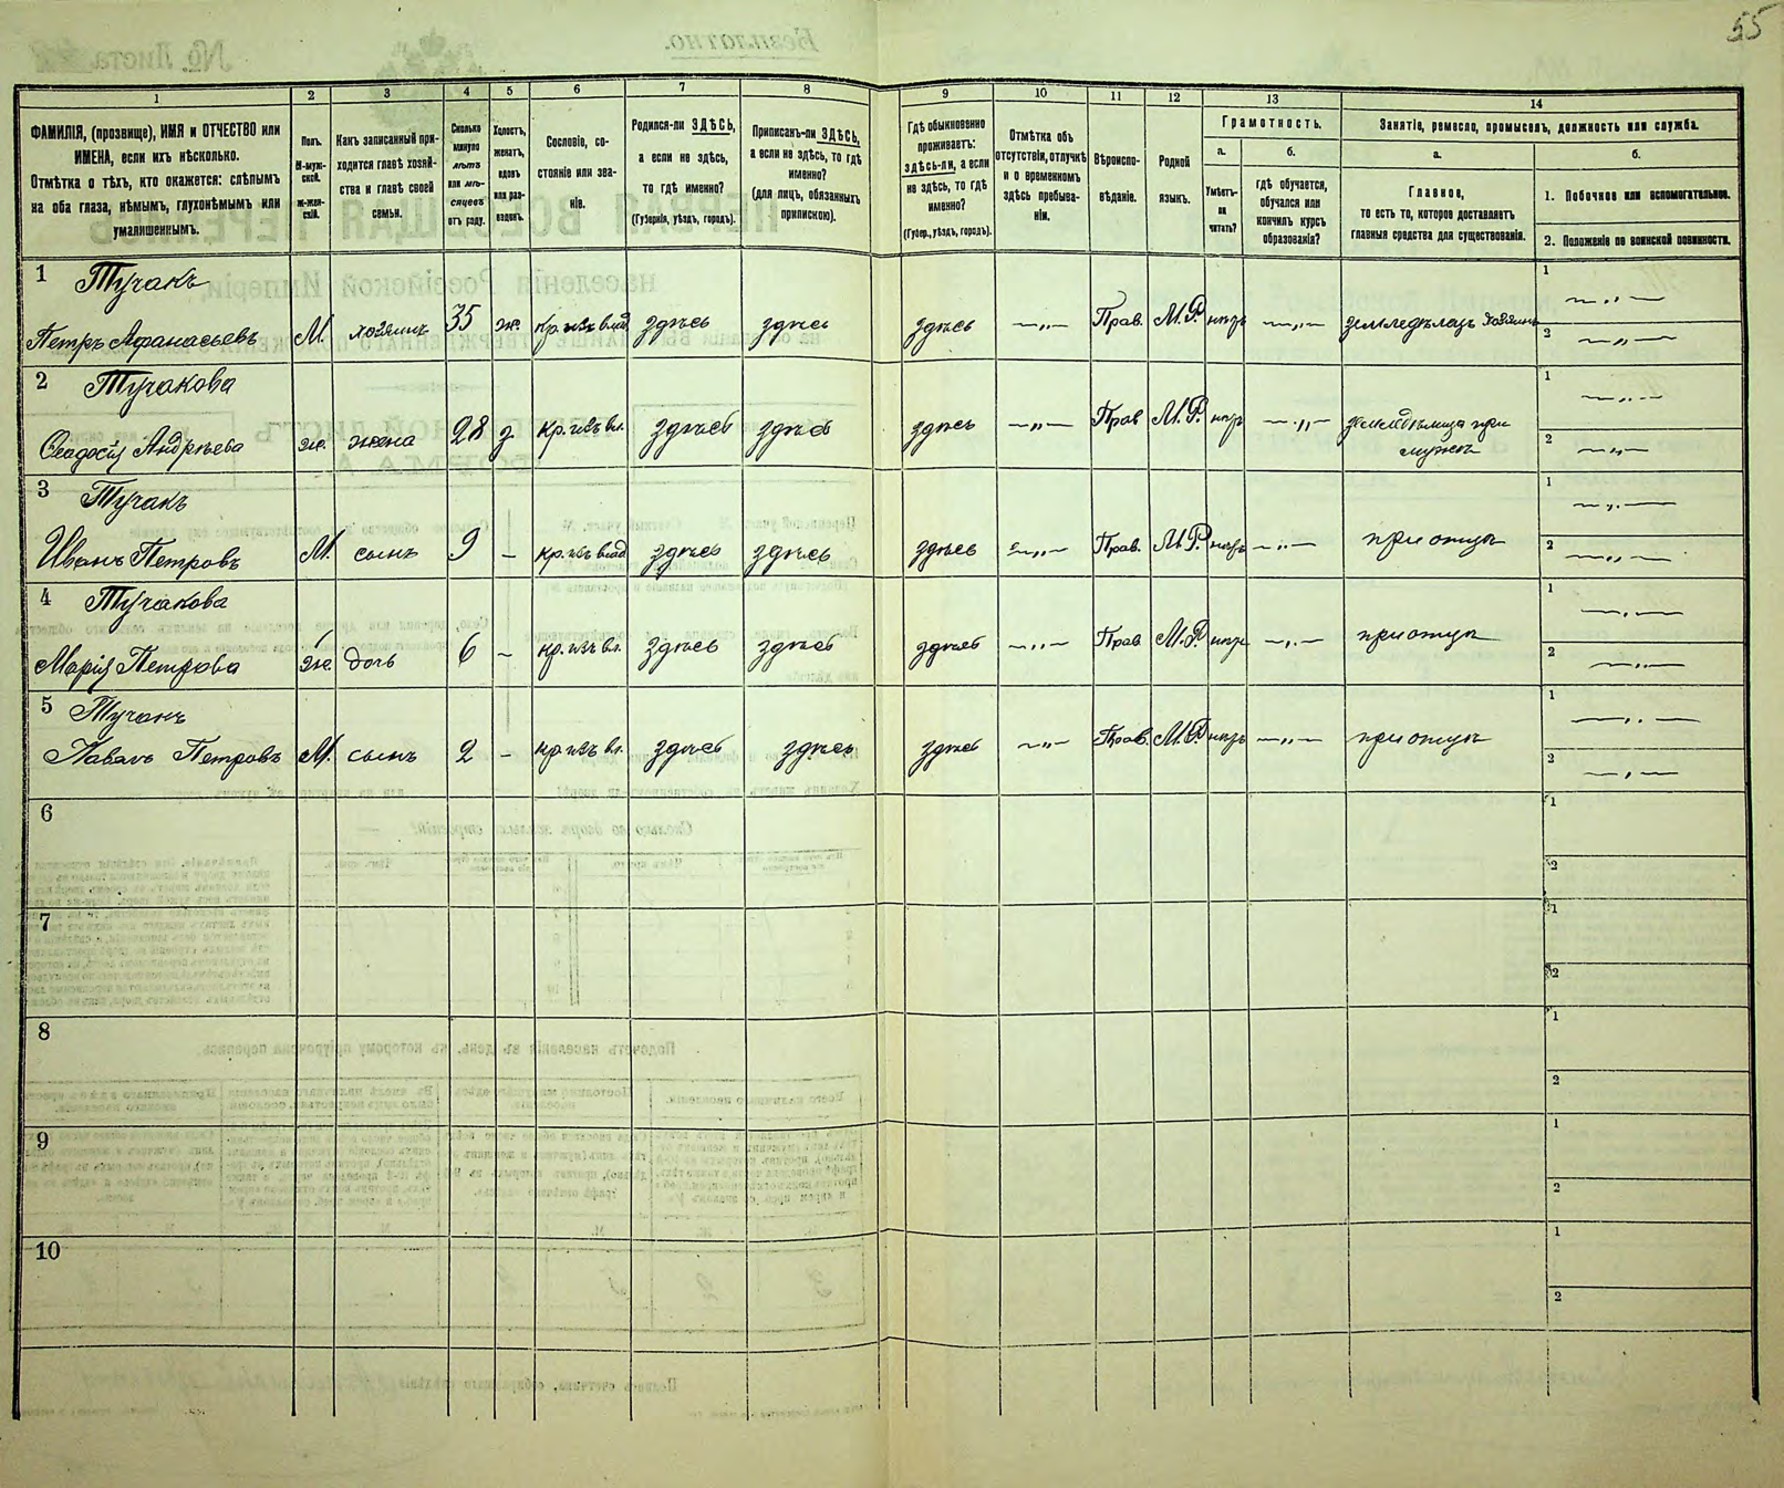 55
1 2 3 4 5 6 7 8 9 10 11 12 13 14
ФАМИЛІЯ, (прозвище), ИМЯ и ОТЧЕСТВО или
ИМЕНА, если ихъ нѣсколько.
Отмѣтка о тѣхъ, кто окажется: слѣпымъ
на оба глаза, нѣмымъ, глухонѣмымъ или
умалишеннымъ.
Полъ.
М-муж-
ской.
Ж-жен-
скій.
Какъ записанный при-
ходится главѣ хозяй-
ства и главѣ своей
семьи.
Сколько
минуло
лѣтъ
или мѣ-
сяцевъ
отъ роду.
Холостъ,
женатъ,
вдовъ
или раз-
веденъ.
Сословіе, со-
стояніе или зва-
ніе.
Родился-ли ЗДѢСЬ,
а если не здѣсь,
то гдѣ именно?
(Губернія, уѣздъ, городъ).
Приписанъ-ли ЗДѢСЬ,
а если не здѣсь, то гдѣ
именно?
(для лицъ, обязанныхъ
припискою).
Гдѣ обыкновенно
проживаетъ:
здѣсь-ли, а если
не здѣсь, то гдѣ
именно?
(Губер., уѣздъ, городъ).
Отмѣтка объ
отсутствіи, отлучкѣ
и о временномъ
здѣсь пребыва-
ніи.
Вѣроиспо-
вѣданіе.
Родной
языкъ.
Грамотность.
а.
Умѣетъ-
ли
читать?
б.
гдѣ обучается,
обучался или
кончилъ курсъ
образованія?
Занятіе, ремесло, промыселъ, должность или служба.
а.
Главное,
то есть то, которое доставляетъ
главныя средства для существованія.
б.
1. Побочное или вспомогательное.
2. Положеніе по воинской повинности.
1 Тучакъ
Петръ Афанасьевъ М. хозяинъ 35 ж. кр. изъ влад. здѣсь здѣсь здѣсь —„— Прав. М.Р. —„— земледѣлецъ хозяинъ
1 —„—
2 —„—
2 Тучакова
Феадосія Андрѣева ж. жена 28 з кр. изъ вл. здѣсь здѣсь здѣсь —„— Прав М.Р. —„— при
мужѣ
1 —„—
2 —„—
3 Тучакъ
Иванъ Петровъ М. сынъ 9 – кр. изъ влад здѣсь здѣсь здѣсь —„— Прав. М.Р. —„— при отцѣ
1 —„—
2 —„—
4 Тучакова
Марія Петрова ж. дочь 6 – кр. изъ вл. здѣсь здѣсь здѣсь —„— Прав М.Р. —„— при отцѣ
1 —„—
2 —„—
5 Тучакъ
Павелъ Петровъ М. сынъ 2 – кр. изъ вл. здѣсь здѣсь здѣсь —„— Прав. М.Р. —„— при отцѣ
1 —„—
2 —„—
6
1
2
7
1
2
8
1
2
9
1
2
10
1
2